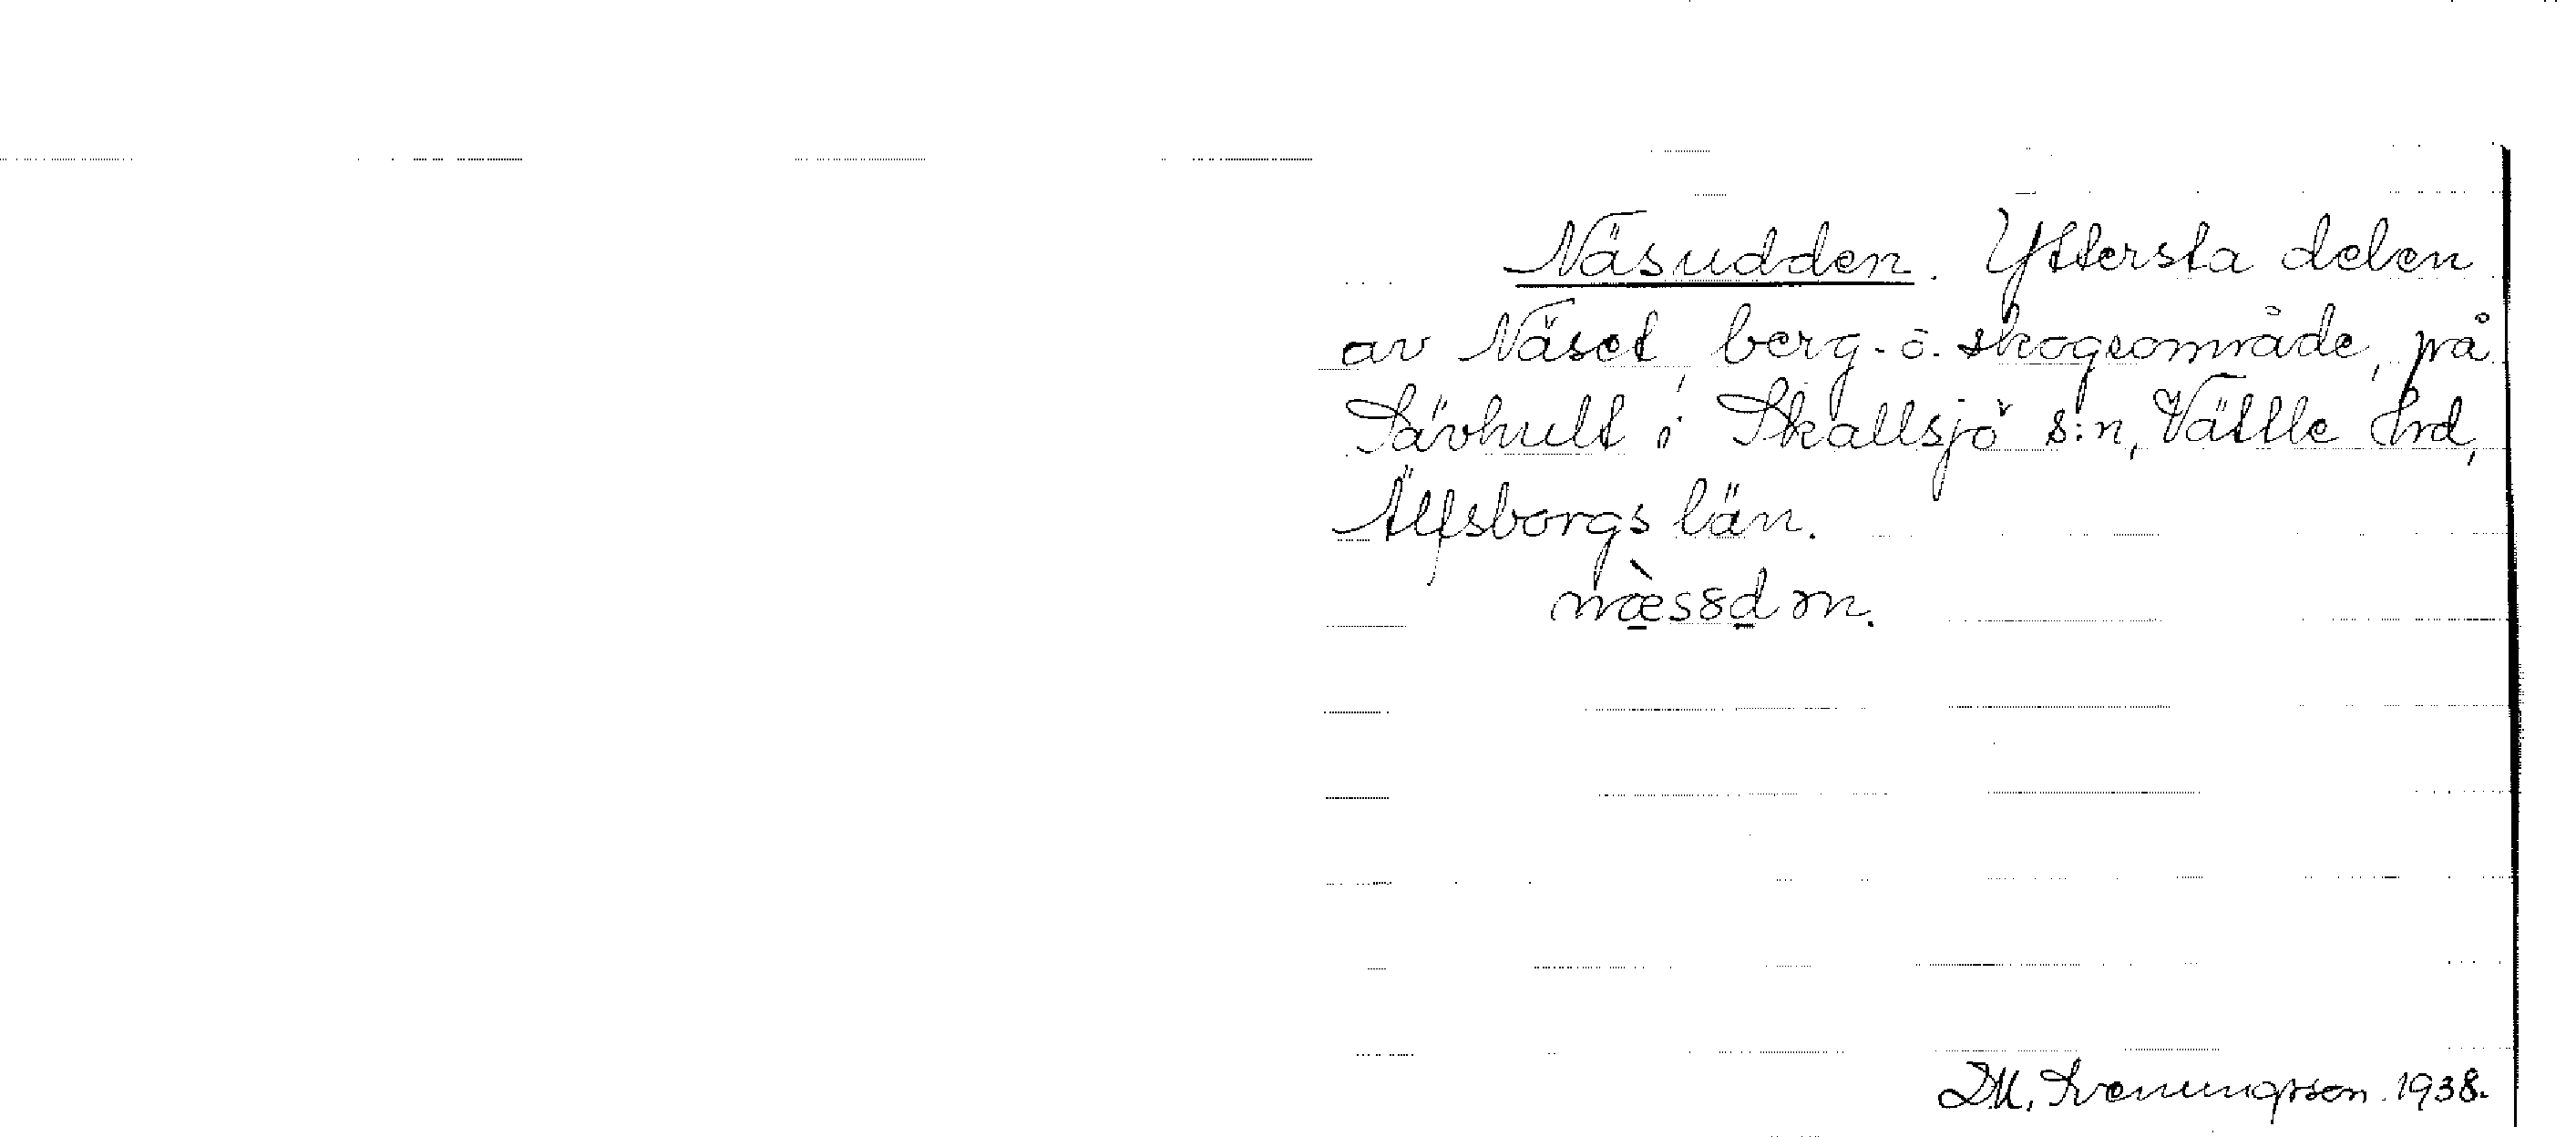 Näsudden. Yttersta delen
av Näset, berg- o. skogsområde, på
Sävhult i Skallsjö s:n, Vättle hrd,
Älfsborgs län.
D.M. Svenungsson. 1938.